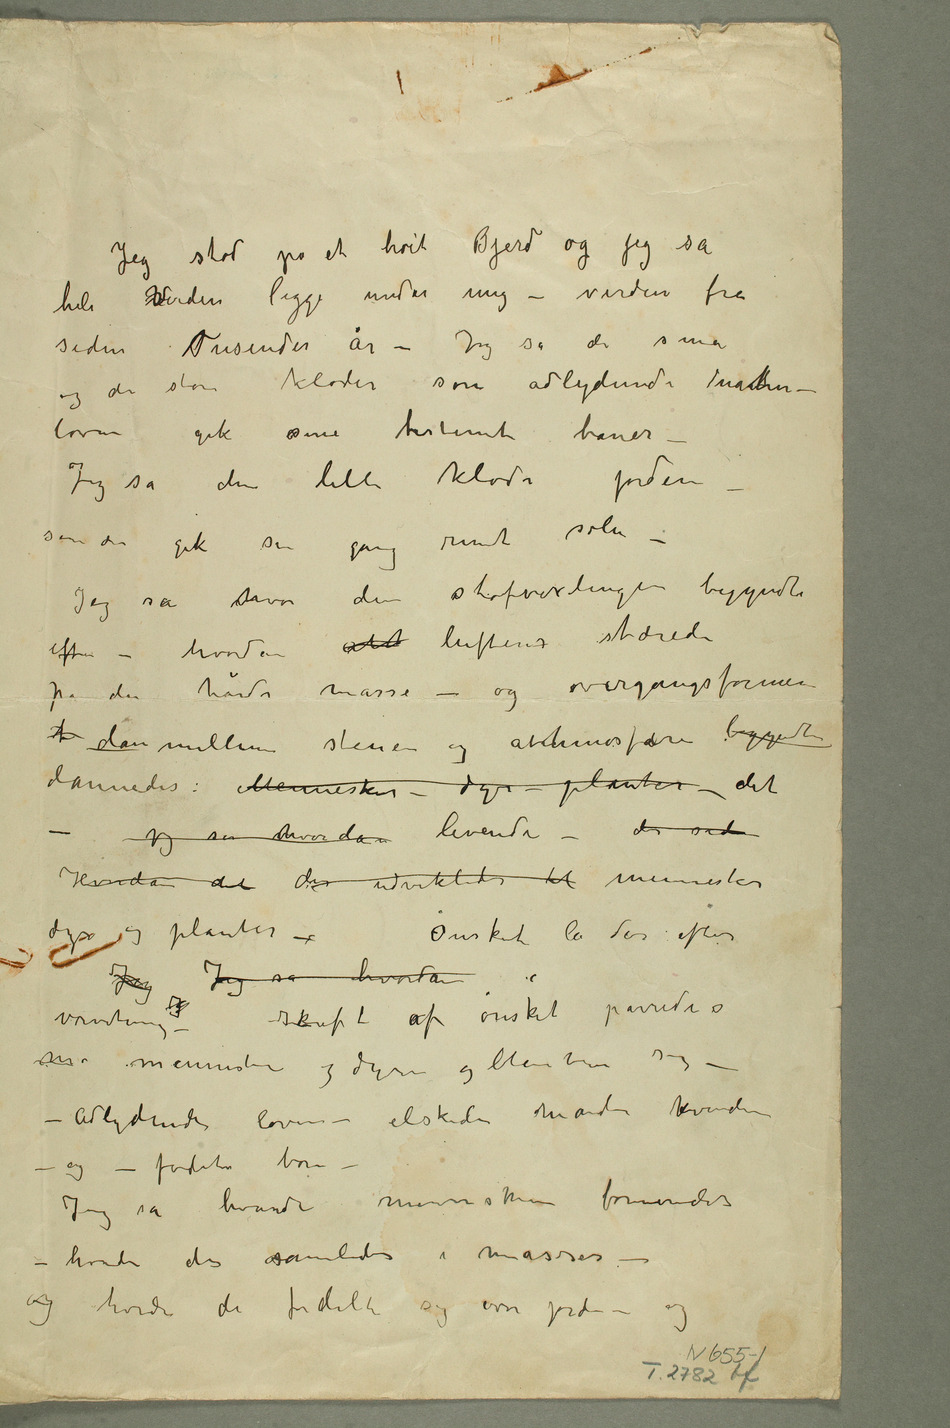 Jeg stod på et høit Bjerd og jeg så
hele Verden ligge under mig – verden fra
siden Tusender år – Jeg så de små
og de store kloder som adlydende naturen–
loven gik sine bestemte baner –
Jeg så den lille klode jorden –
som der gik sin gang rundt solen –
Jeg så hvor den stofvexlingen begyndte
– hvordan att luften tærede
på den hårde masse – og overgangsformen
t dan mellem stenen og athmosfæren begyndte
dannedes: Mennesker – dyr – planter – det
– jeg så hvordan levende –
Hvordan det der udvikledes til mennesker
dyr og planter – Ønsket la der efter
Jeg Jeg så hvordan
Kraft af ønsket parredes
mennesker og dyrene og planterne sig –
– Adlydende loven – elskede manden kvinden
– og – fødte børn –
Jeg så hvorde menneskene formeredes
– hvorde der samledes i masser –
og hvorde de fordelte sig over jorden – og
N 655-1
T. 2782